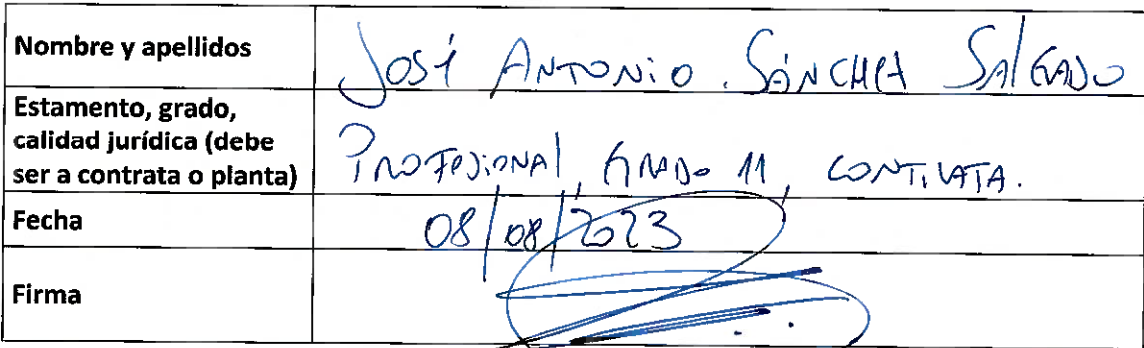 Nombre y apellidos
José Antonio Sánchez Salgado
Estamento, grado,
calidad jurídica (debe
ser a contrata o planta)
Profesional, Grado 11, Contrata.
Fecha
08/08/2023
Firma